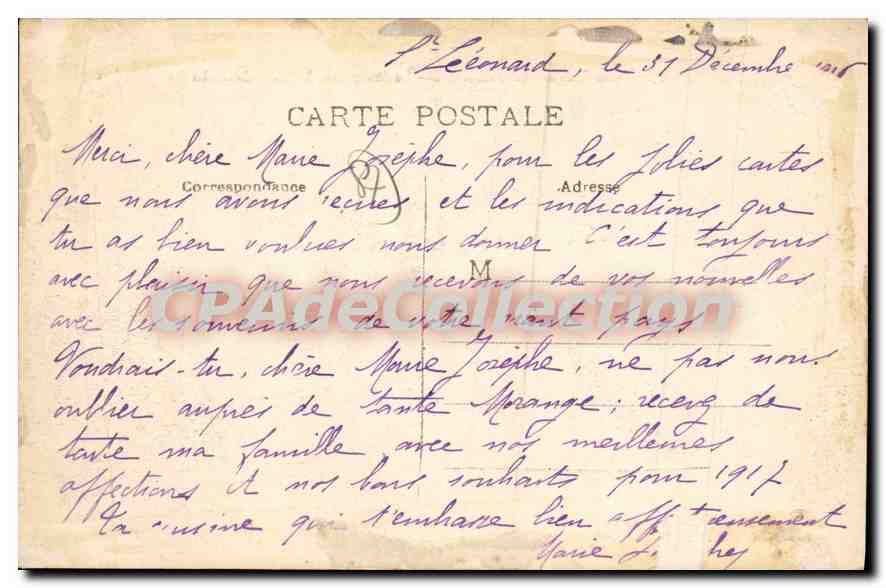 St Léonard, le 31 Décembre 1916
CARTE POSTALE
Merci, chère Marie Josèphe, pour les jolies cartes
Correspondance
87
Adresse
que nous avons reçues et les indications que
tu as bien voulues nous donner C'est toujours
M
avec plaisir que nous recevons de vos nouvelles
CPAdeCollection
avec les souvenirs de votre pays
Voudrais-tu, chère Marie Josèphe, ne pas nous
oublier auprès de tante Morange; recevez de
toute ma famille avec nos meilleures
affections et nos bons souhaits pour 1917
Ta cousine qui t'embrasse bien affectueusement
Marie